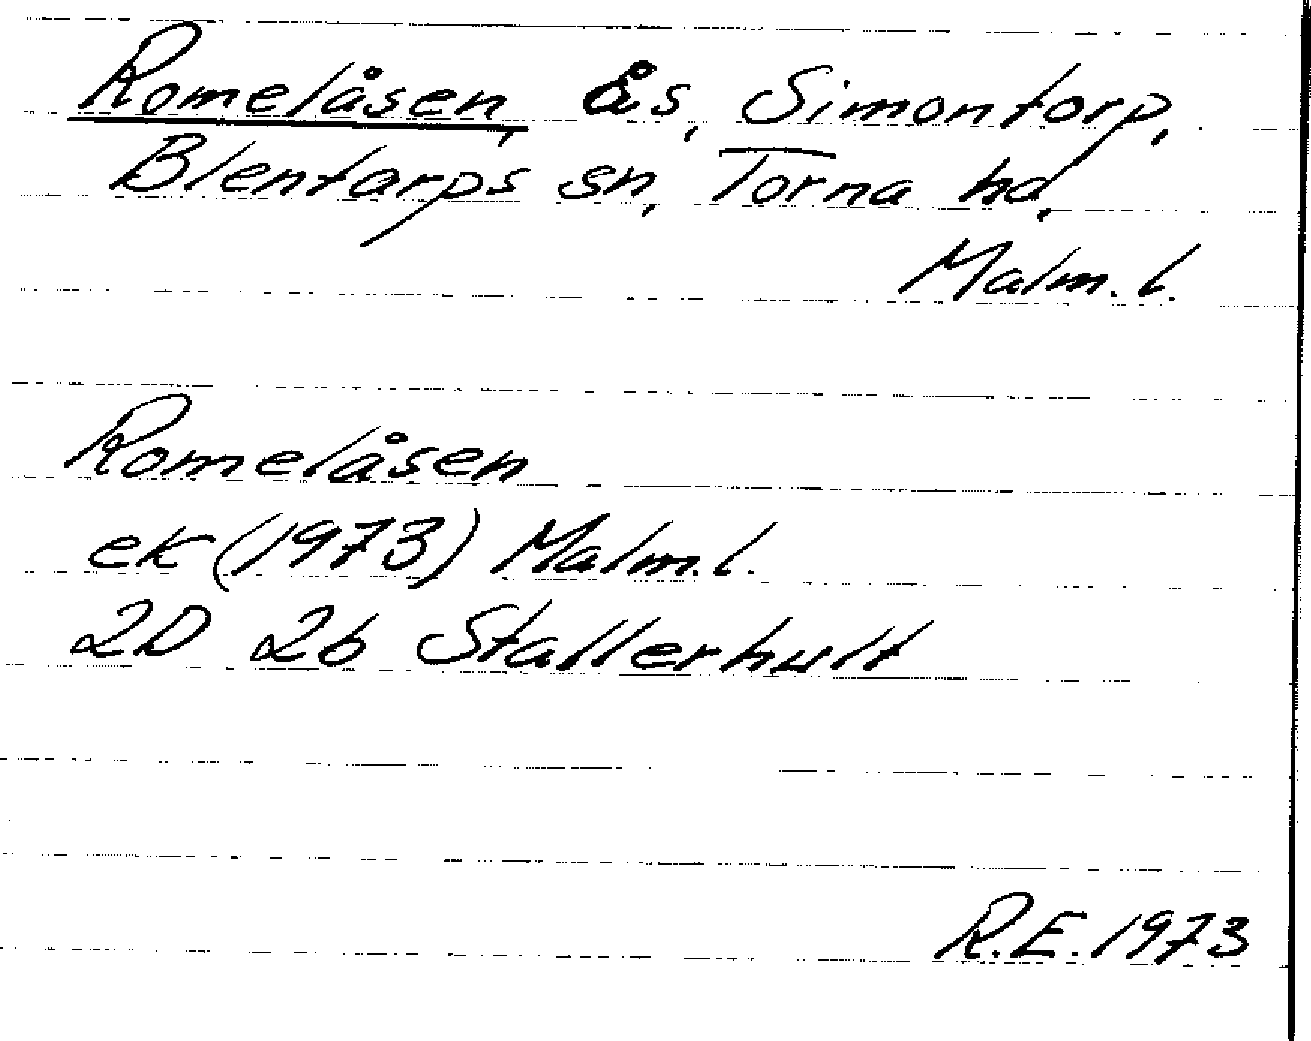 Romelåsen, Ås, Simontorp,
Blentarps sn, Torna hd,
Malm. l.
Romelåsen
ek (1973) Malm. l.
2D 2b Stallerhult
R.E. 1973